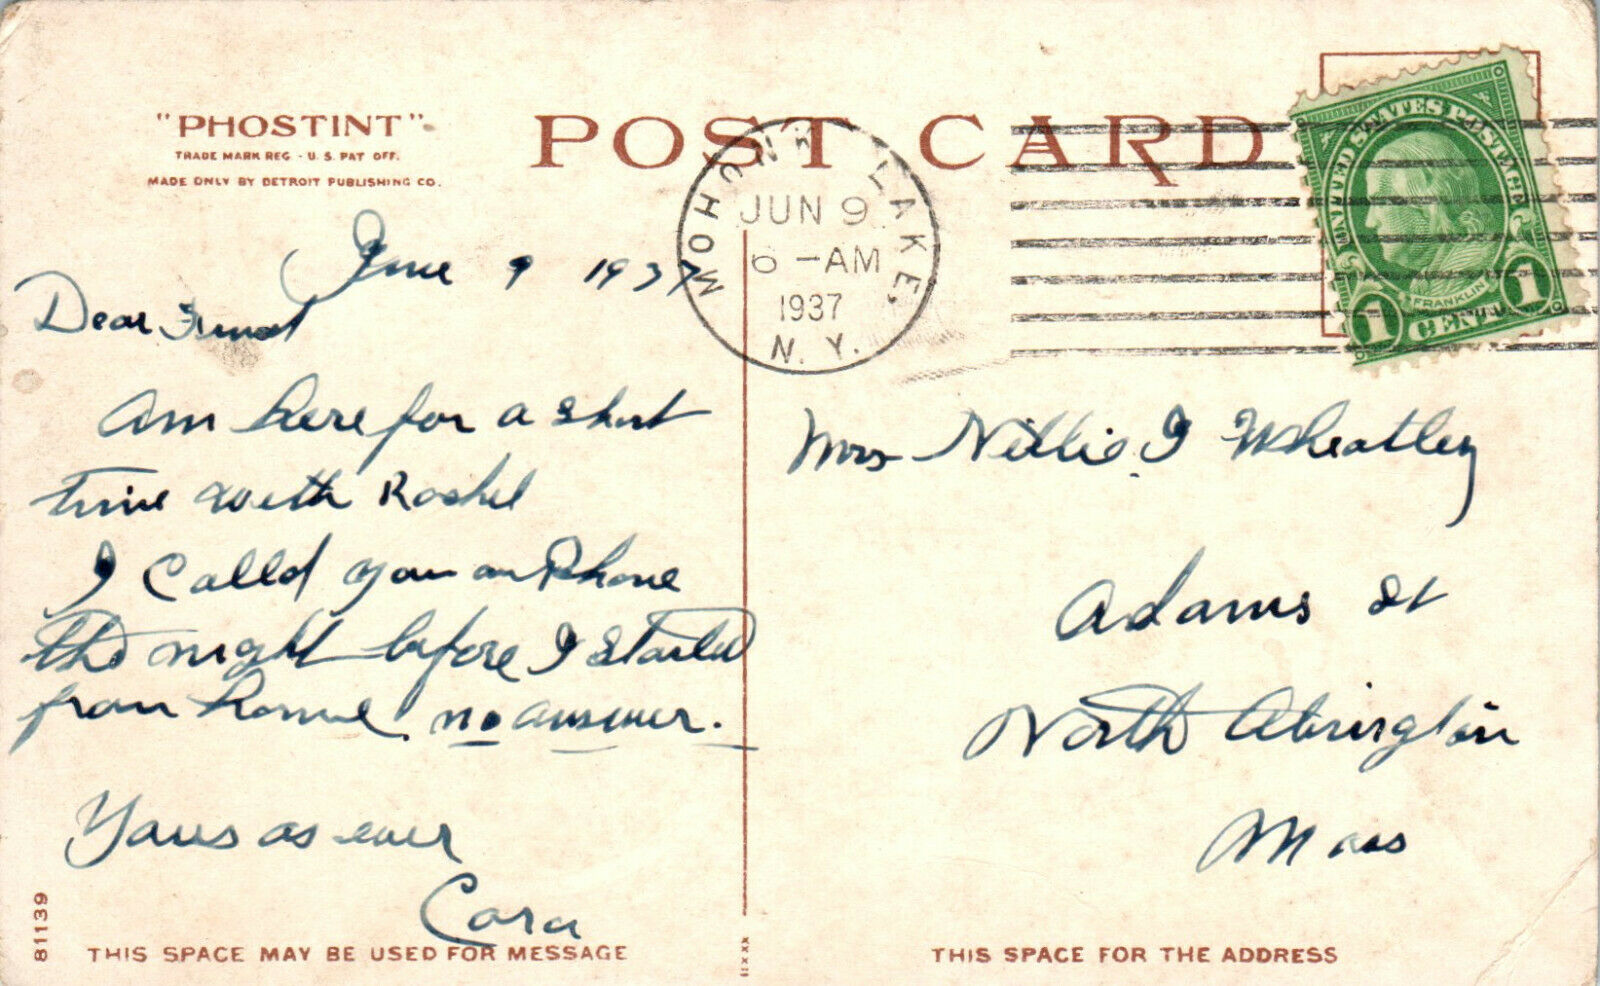 "PHOSTINT"
TRADE MARK REG - U.S. PAT OFF.
MADE ONLY BY DETROIT PUBLISHING CO.
POST CARD
MOHONK LAKE,
JUN 9
6-AM
1937
N. Y.
UNITED STATES POSTAGE
FRANKLIN
1 CENT 1
June 9 1937
Dear
Am here for a short
time with Rachel
I called you on Phone
the night before I started
from home. no answer.
Yours as ever
Cora
Mrs Nellie I Wheatley
Adams St
North Abington
Mass
81139
THIS SPACE MAY BE USED FOR MESSAGE
THIS SPACE FOR THE ADDRESS